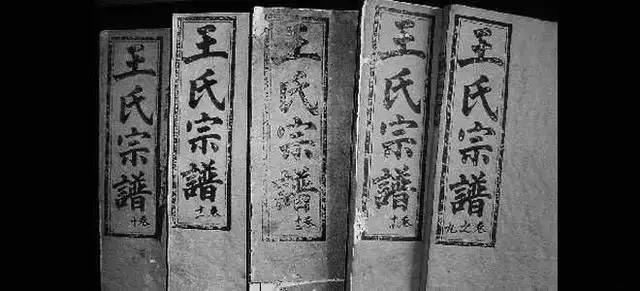 王氏宗譜
卷十
王氏宗譜
卷十一
王氏宗譜
王氏宗譜
王氏宗譜
卷之九